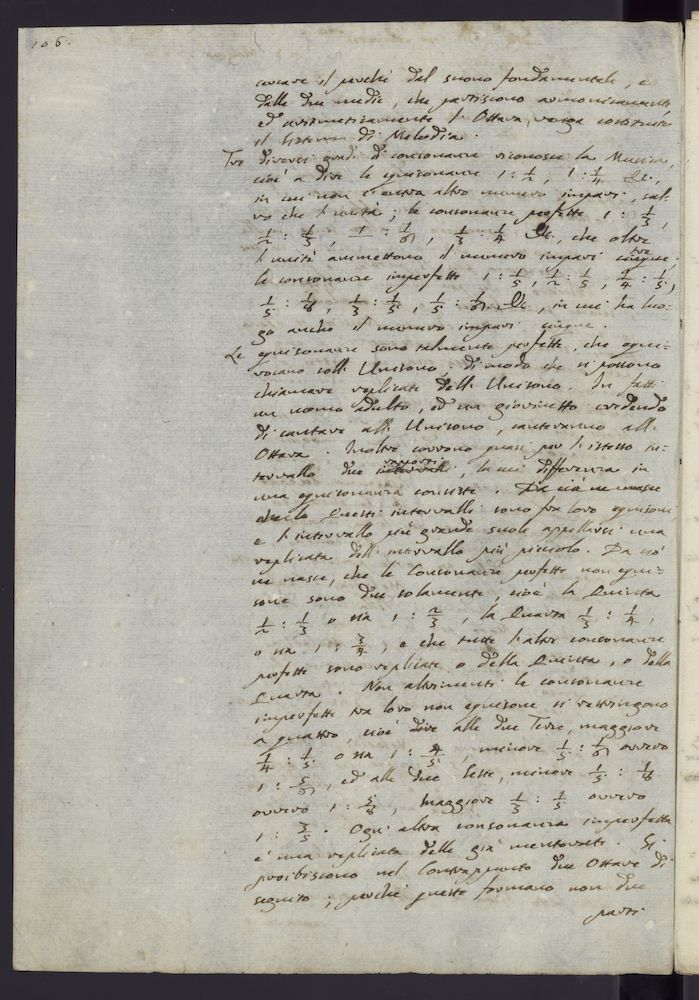 106.
cercare il perchè dal suono fondamentale, e
dalle due medie, che partiscono armonicamente
ed aritmeticamente l'Ottava, venga costituito
il sistema di Melodia.
Tre diversi gradi di consonanze riconosce la Musica,
cioè a dire le equisonanze 1 : 1/2, 1 : 1/4 &c.,
in cui non c'entra altro numero impari, sal-
vo che l'unità; le consonanze perfette 1 : 1/3,
1/2 : 1/3, 1 : 1/6, 1/3 : 1/4 &c., che oltre
l'unità ammettono il numero impari tre;
le consonanze imperfette 1 : 1/5, 1/2 : 1/5, 1/4 : 1/5,
1/5 : 1/8, 1/3 : 1/5, 1/5 : 1/6 &c., in cui ha luo-
go anche il numero impari cinque.
Le equisonanze sono talmente perfette, che equi-
vocano coll'Unisono; di modo che si possono
chiamare replicate dell'Unisono. In fatti
un uomo adulto, ed un giovinetto credendo
di cantare all'Unisono, canteranno all'
Ottava. Inoltre corrono quasi per l'istesso in-
tervallo due rapporti, la cui differenza in
una equisonanza consiste.
Questi intervalli sono fra loro equisoni
e l'intervallo più grande suole appellarsi una
replicata dell'intervallo più piccolo. Da ciò
ne nasce, che le Consonanze perfette non equi-
sone sono due solamente, cioè la Quinta
1/2 : 1/3 o sia 1 : 2/3, la Quarta 1/3 : 1/4,
o sia 1 : 3/4, e che tutte l'altre consonanze
perfette sono replicate o della Quinta, o della
Quarta. Non altrimenti le consonanze
imperfette tra loro non equisone si restringono
a quattro, cioè alle due Terze, maggiore
1/4 : 1/5 o sia 1 : 4/5, minore 1/5 : 1/6 ovvero
1 : 5/6, ed alle due Seste, minore 1/5 : 1/8
ovvero 1 : 5/8, maggiore 1/3 : 1/5 ovvero
1 : 3/5. Ogni altra consonanza imperfetta
è una replicata delle già mentovate. Si
proibiscono nel Contrappunto due Ottave di
seguito; perchè queste formano non due
parti